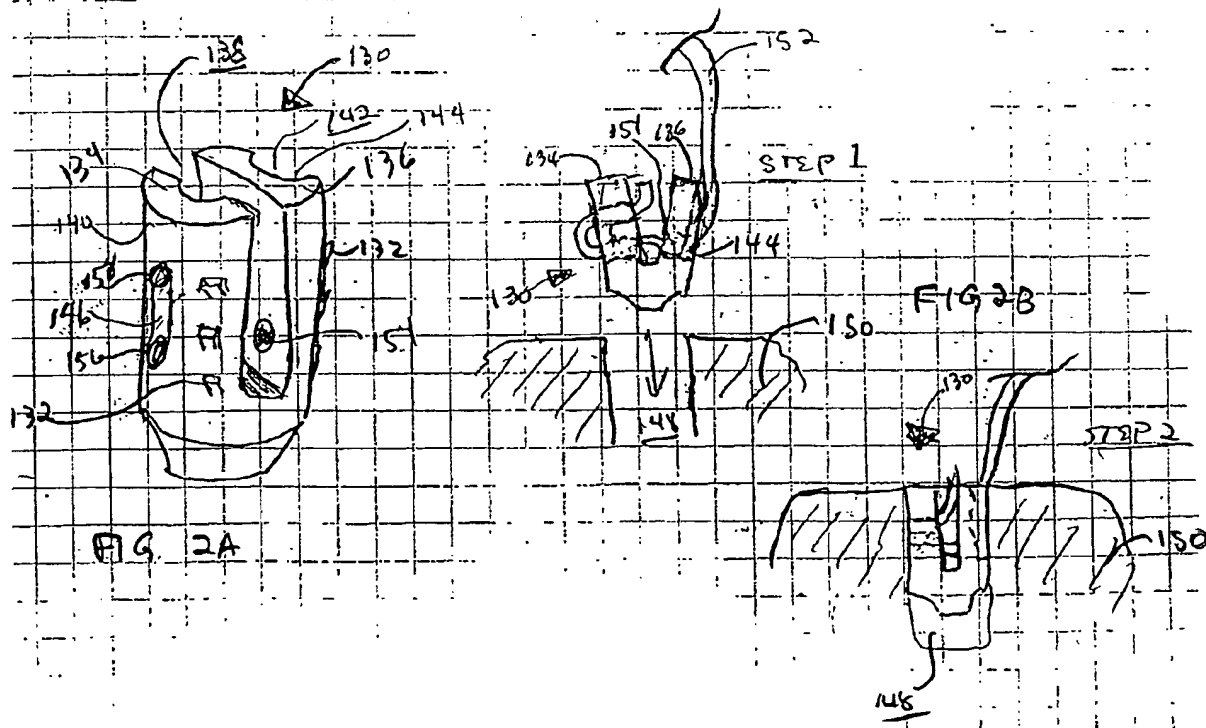 138
130
142
144
134
136
140
132
158
146
156
151
132
FIG. 2A
152
151
136
134
STEP 1
144
130
150
148
FIG 2B
130
STEP 2
150
148